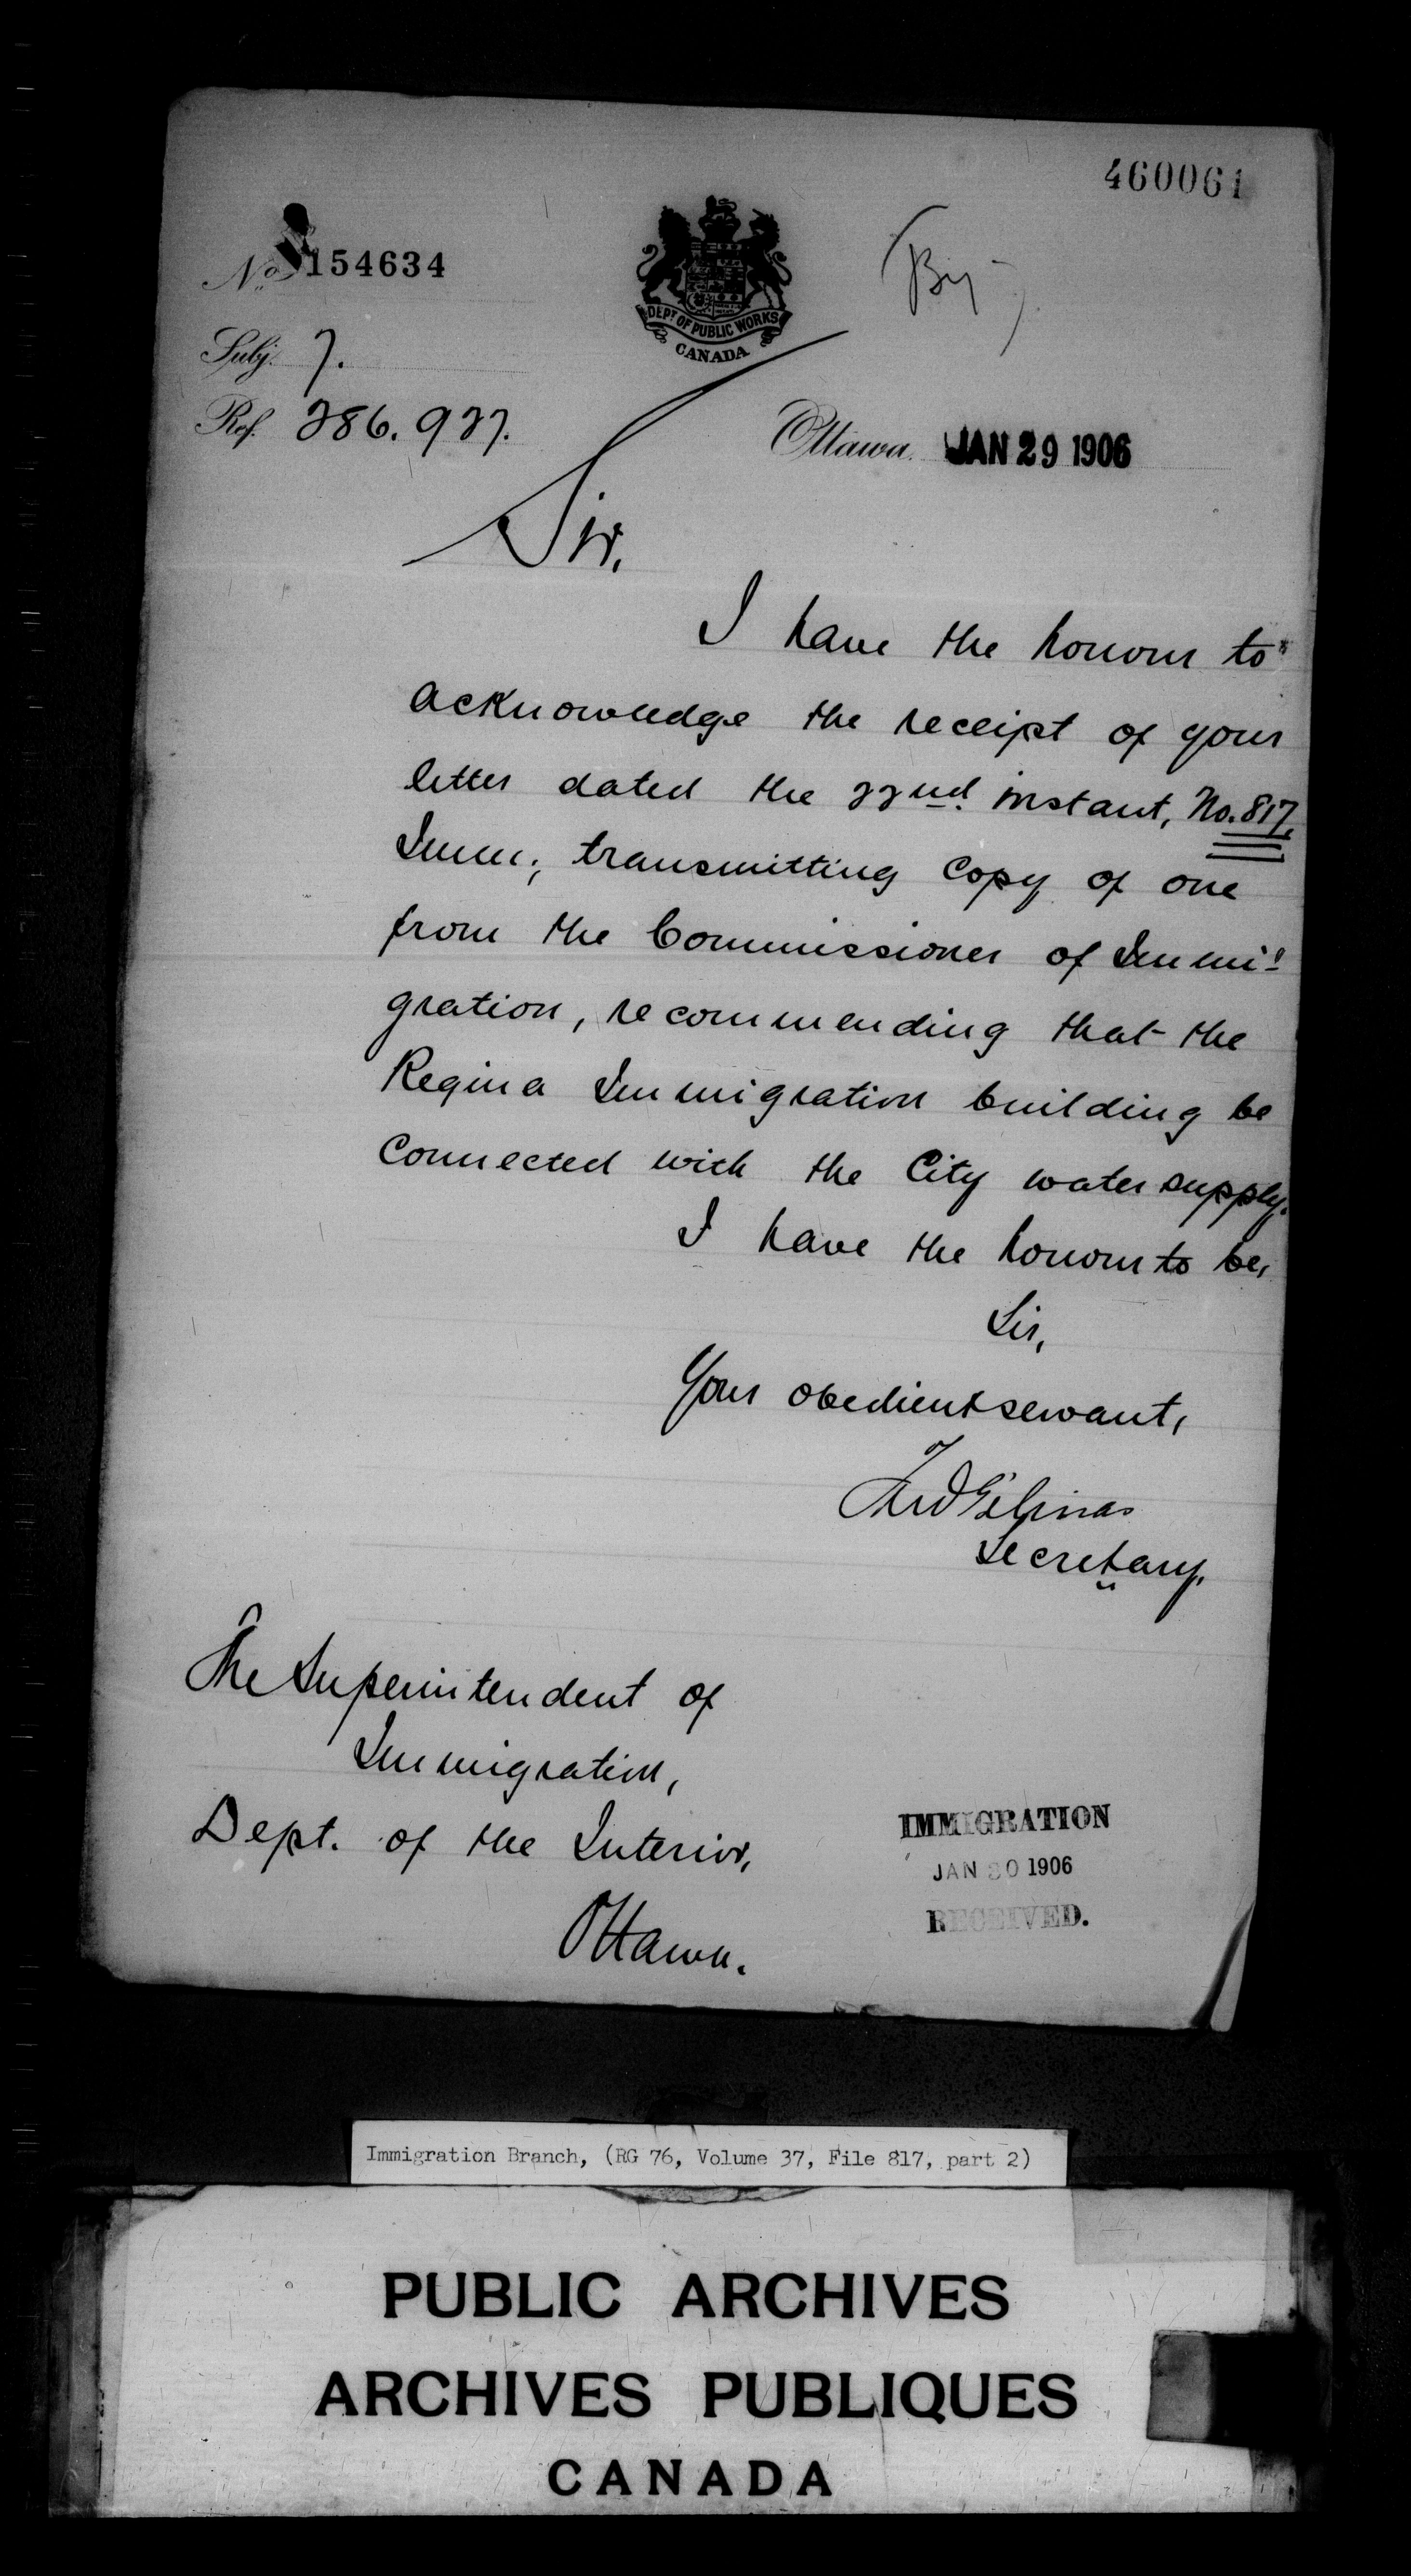 460061
No. 154634
DEPT OF PUBLIC WORKS
CANADA
Subj. 7.
Ref. 286.927.
Ottawa. JAN 29 1906
Sir,
I have the honour to
acknowledge the receipt of your
letter dated the 22nd. instant, No. 817,
Imm, transmitting copy of one
from the Commissioner of Immi-
gration, recommending that the
Regina Immigration building be
connected with the City water supply.
I have the honour to be,
Sir,
Your obedient servant,
Fred Gélinas
Secretary.
The Superintendent of
Immigration,
Dept. of the Interior,
Ottawa.
IMMIGRATION
JAN 30 1906
RECEIVED.
Immigration Branch, (RG 76, Volume 37, File 817, part 2)
PUBLIC ARCHIVES
ARCHIVES PUBLIQUES
CANADA